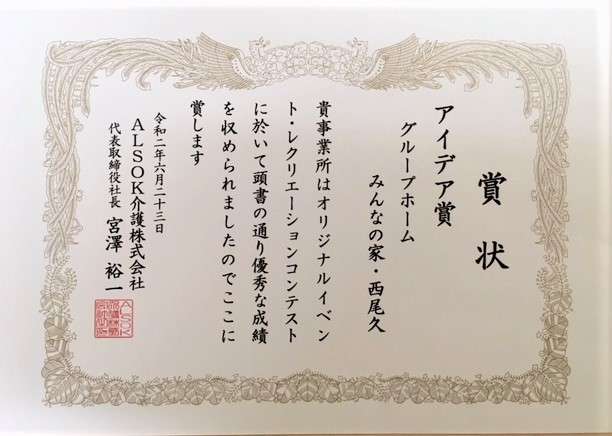 賞状
アイデア賞
グループホーム
みんなの家・西尾久
貴事業所はオリジナルイベン
ト・レクリエーションコンテスト
に於いて頭書の通り優秀な成績
を収められましたのでここに
賞します
令和二年六月二十三日
ALSOK介護株式会社
代表取締役社長 宮澤裕一